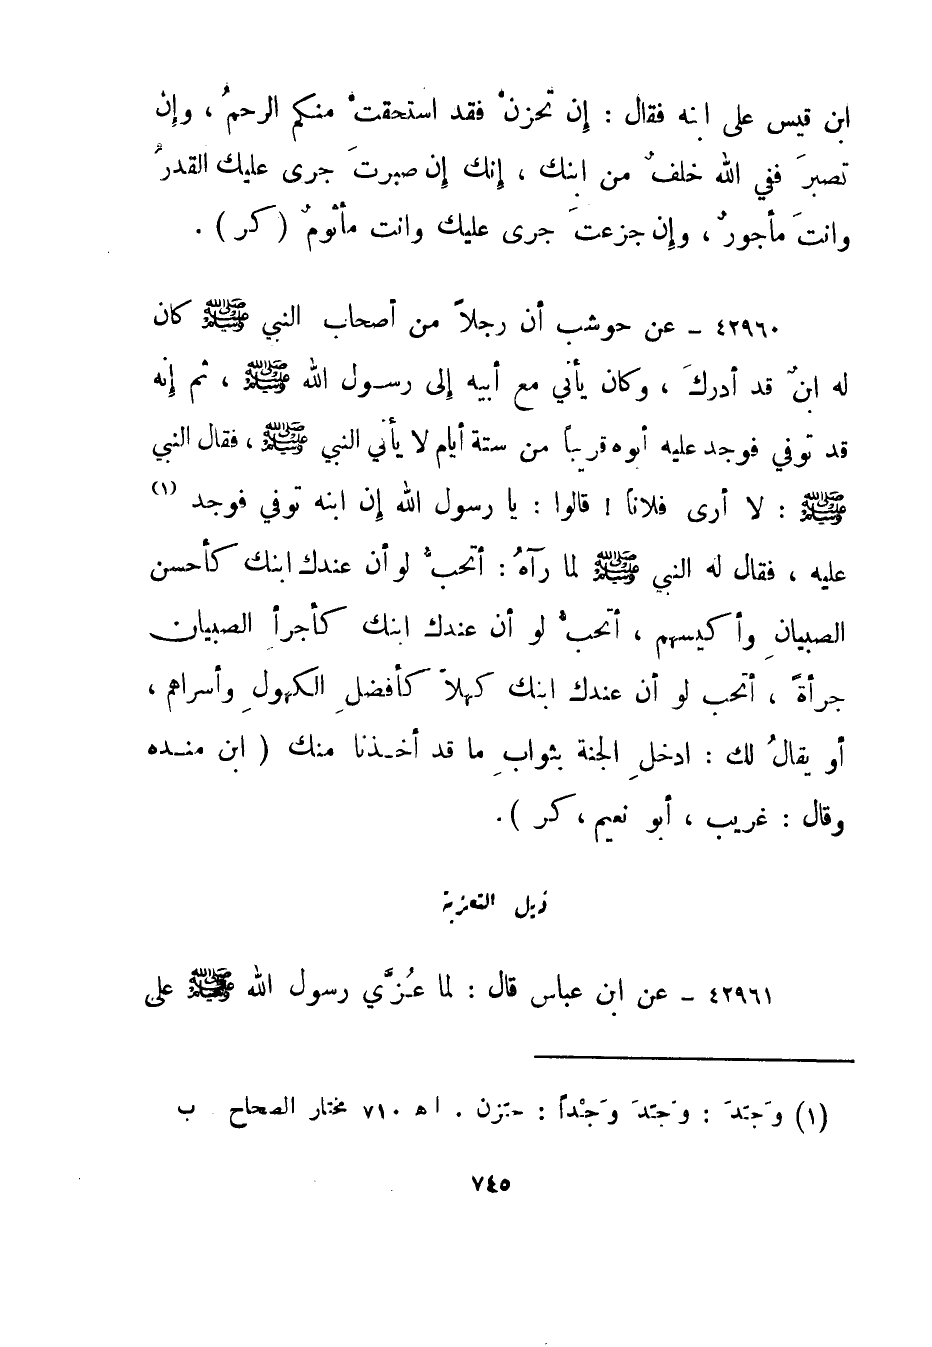 ابن قيس على ابنه فقال : إن تحزنْ فقد استحقتْ منكم الرحمُ ، وإن
تصبرَ ففي الله خلفٌ من ابنك ، إنك إن صبرتَ جرى عليك القدرُ
وانتَ مأجورٌ ، وإن جزعتَ جرى عليك وانت مأثومٌ ( كر ) .
٤٢٩٦٠ ـ عن حوشب أن رجلاً من أصحاب النبي ﷺ كان
له ابنٌ قد أدركَ ، وكان يأتي مع أبيه إلى رسول الله ﷺ ، ثم إنه
قد توفي فوجد عليه أبوه قريباً من ستة أيام لا يأتي النبي ﷺ ، فقال النبي
ﷺ : لا أرى فلاناً ! قالوا : يا رسول الله إن ابنه توفي فوجد (١)
عليه ، فقال له النبي ﷺ لما رآهُ : أتحبُّ لو أن عندك ابنك كأحسن
الصبيانِ وأكيسهم ، أتحبُّ لو أن عندك ابنك كأجرأِ الصبيان
جرأةً ، أتحب لو أن عندك ابنك كهلاً كأفضلِ الكهولِ وأسراهم ،
أو يقالُ لك : ادخلِ الجنة بثوابِ ما قد أخذنا منك ( ابن منده
وقال : غريب ، أبو نعيم ، كر ) .
ذيل التعزية
٤٢٩٦١ ـ عن ابن عباس قال : لما عُزِّي رسول الله ﷺ على
(١) وَجَدَ : وَجَدَ وَجْداً : حَزن . اه ٧١٠ مختار الصحاح ب
٧٤٥